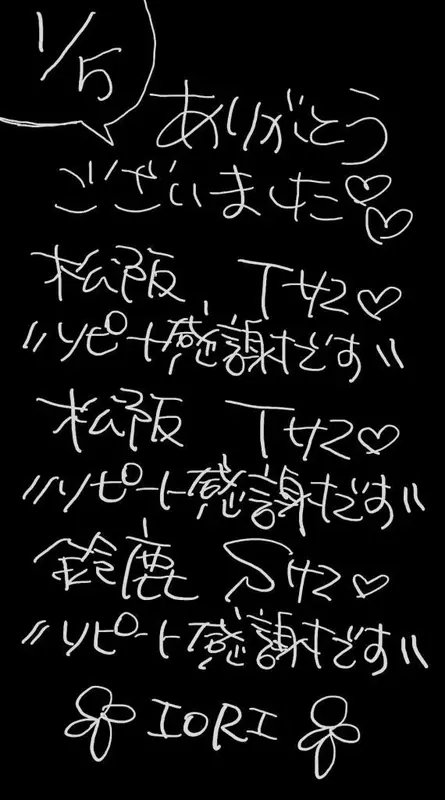 1/5
ありがとう
ございました♡♡
松阪 Tサマ♡
〃リピート感謝です〃
松阪 Tサマ♡
〃リピート感謝です〃
鈴鹿 Sサマ♡
〃リピート感謝です〃
IORI